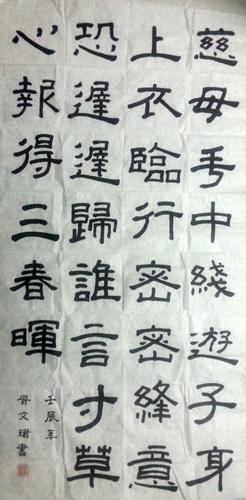 慈母手中綫遊子身
上衣臨行密密縫意
恐遲遲歸誰言寸草
心報得三春暉
壬辰年
文珺書